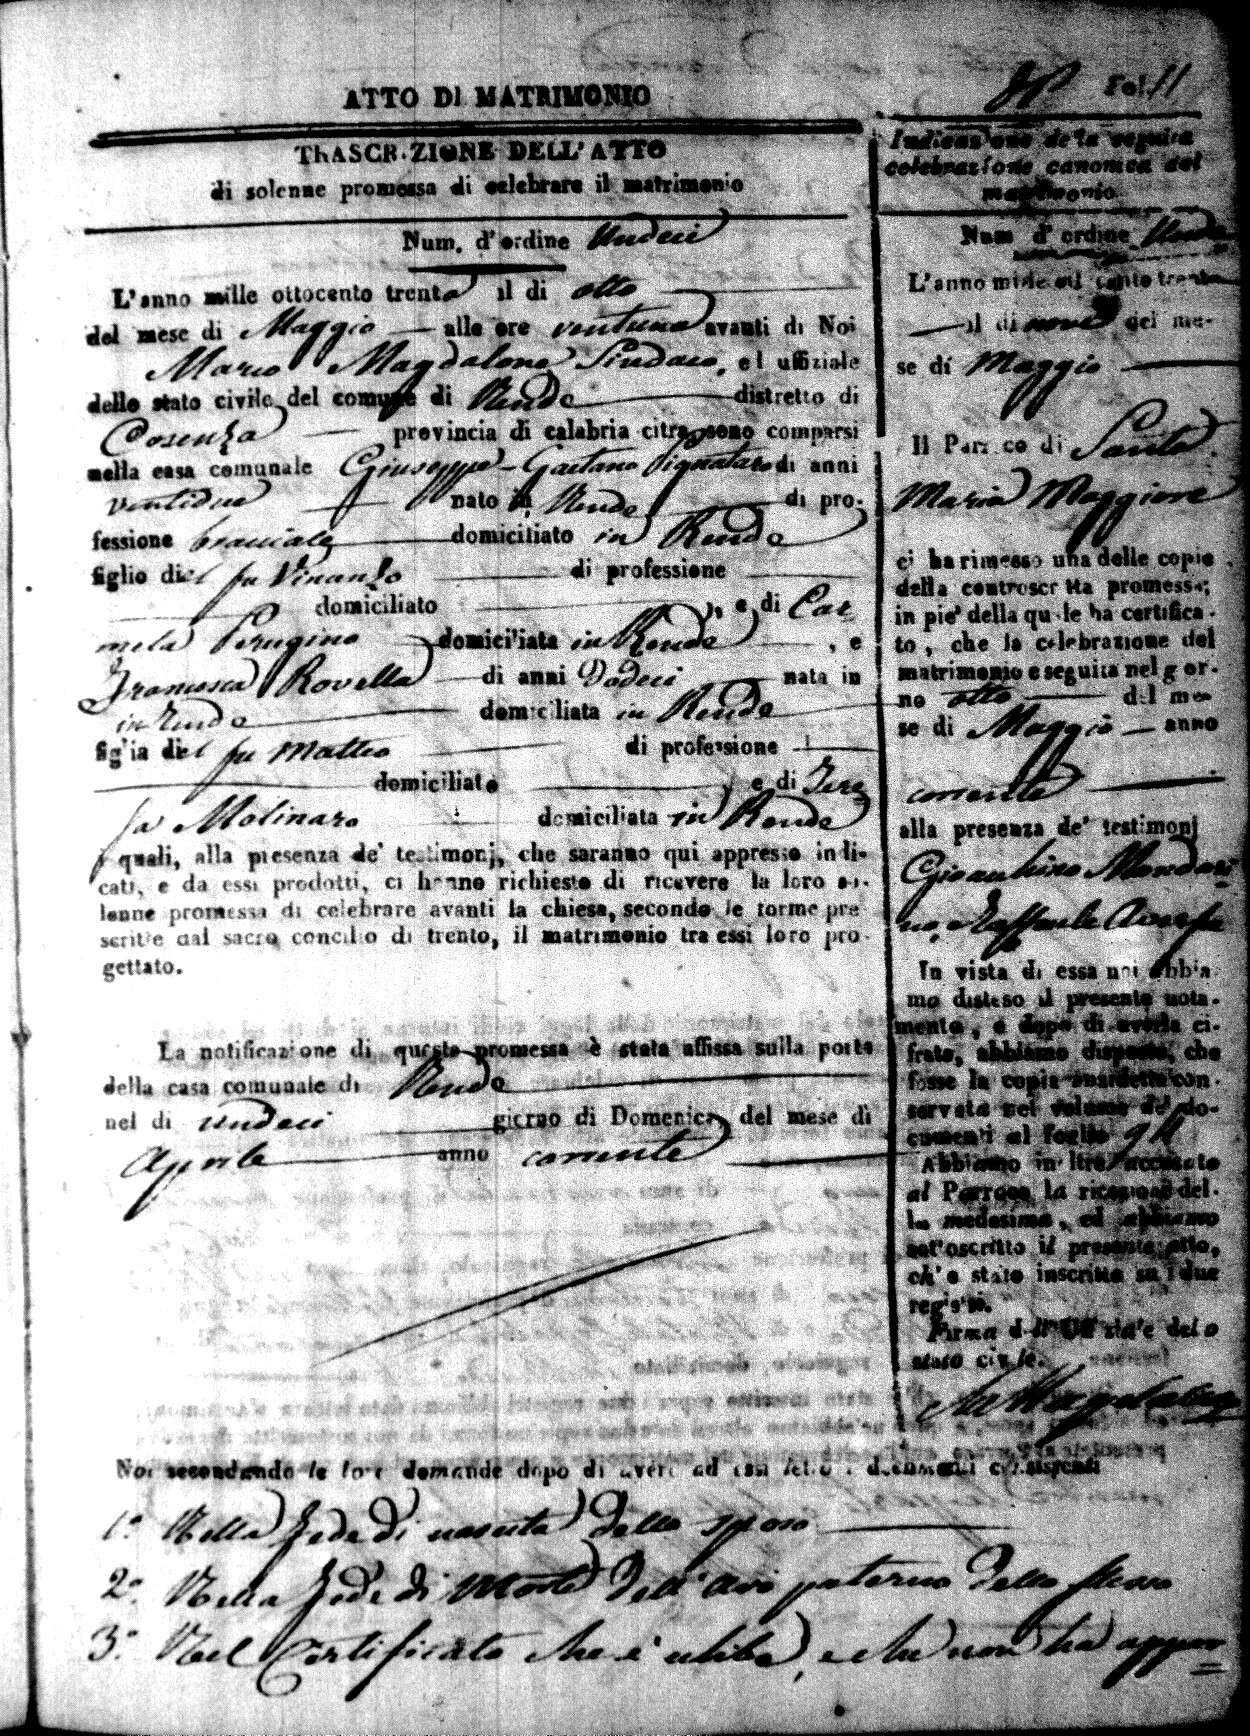 Fol. 11
ATTO DI MATRIMONIO
TRASCRIZIONE DELL'ATTO
di solenne promessa di celebrare il matrimonio
Num. d'ordine Undeci
L'anno mille ottocento trenta il di otto
del mese di Maggio alle ore ventuna avanti di Noi
Mario Magdalone Sindaco, ed uffiziale
dello stato civile del comune di Rende distretto di
Cosenza provincia di calabria citra sono comparsi
nella casa comunale Giuseppe-Gaetano Pignataro di anni
ventidue nato in Rende di pro-
fessione bracciale domiciliato in Rende
figlio del fu Vinanzo di professione
domiciliato , e di Car
mela Perugino domiciliata in Rende , e
Francesca Rovella di anni Dodeci nata in
in Rende domiciliata in Rende
figlia del fu Matteo di professione
domiciliato e di Tere
sa Molinaro domiciliata in Rende
i quali, alla presenza de' testimonj, che saranno qui appresso indi-
cati, e da essi prodotti, ci hanno richiesto di ricevere la loro so-
lenne promessa di celebrare avanti la chiesa, secondo le forme pre
scritte dal sacro concilio di trento, il matrimonio tra essi loro pro-
gettato.
La notificazione di questa promessa è stata affissa sulla porta
della casa comunale di Rende
nel di undeci giorno di Domenica del mese di
Aprile anno corrente
Noi secondando le loro domande dopo di avere ad essi letto i documenti consistenti
1.° Nella fede di nascita dello sposo
2.° Nella fede di Morte dell'Avo paterno dello stesso
3.° Nel Certificato che è e che non ha
Indicazione della seguita
celebrazione canonica del
matrimonio
Num d'ordine Unde
L'anno mille ottocento trenta
il di nove del me-
se di Maggio
Il Parroco di Santa
Maria Maggiore
ci ha rimesso una delle copie
della controscritta promessa;
in pie' della quale ha certifica-
to, che la celebrazione del
matrimonio e seguita nel gior-
no otto del me-
se di Maggio anno
corrente
alla presenza de' testimonj
Gioacchino
Raffaele
In vista di essa noi abbia
mo disteso il presente nota-
mento, e dopo di averla ci-
frata, abbiamo disposto, che
fosse la copia anzidetta con-
servata nel volume de' do-
cumenti al foglio
Abbiamo inoltre accusato
al Parroco la ricezione del-
la medesima, ed abbiamo
sottoscritto il presente atto,
ch'è stato inscritto su i due
registri.
Firma dell'Uffiziale dello
stato civile.
Magdalone